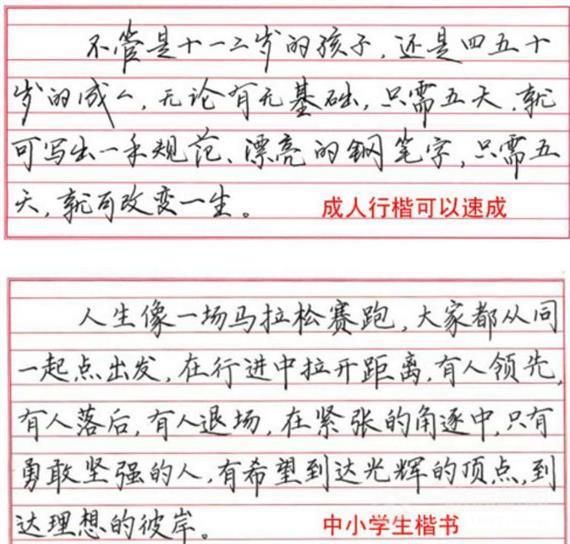 不管是十一二岁的孩子,还是四五十
岁的成人,无论有无基础,只需五天,就
可写出一手规范、漂亮的钢笔字,只需五
天,就可改变一生。 成人行楷可以速成
人生像一场马拉松赛跑,大家都从同
一起点出发,在行进中拉开距离,有人领先,
有人落后,有人退场,在紧张的角逐中,只有
勇敢坚强的人,有希望到达光辉的顶点,到
达理想的彼岸。 中小学生楷书